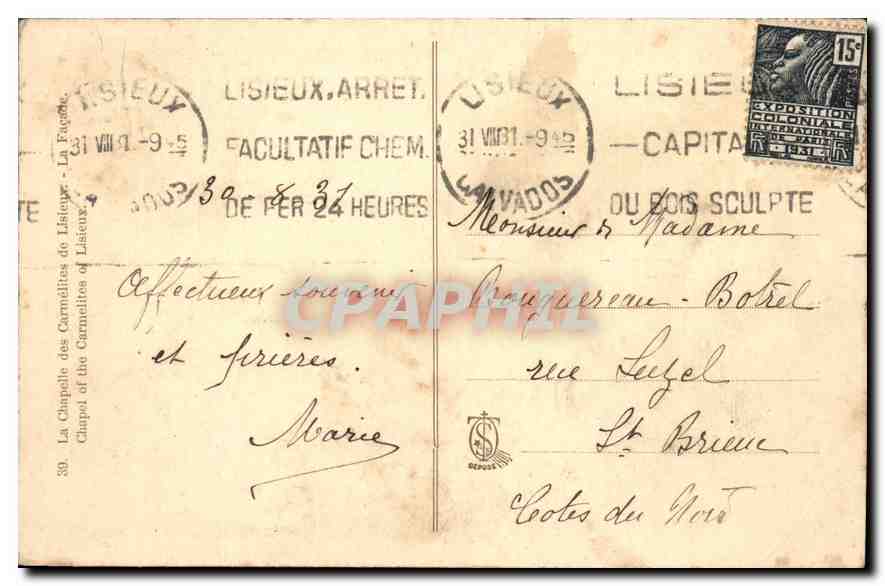 39. La Chapelle des Carmélites de Lisieux. - La Façade.
Chapel of the Carmelites of Lisieux.
LISIEUX
31 VIII 31. -9 45
CALVADOS
LISIEUX, ARRET.
FACULTATIF CHEM.
DE FER 24 HEURES
LISIEUX
31 VIII 31. -9 45
CALVADOS
LISIE
—CAPITA
OU BOIS SCULPTE
TE
15c
POSTES
EXPOSITION
COLONIALE
INTERNATIONALE
PARIS
1931
30-8-31
Affectueux souvenir
et prières.
Marie
Monsieur & Madame
Bouguereau - Botrel
rue Luzel
St Brieuc
Cotes du Nord
DEPOSE
CPAPHIL